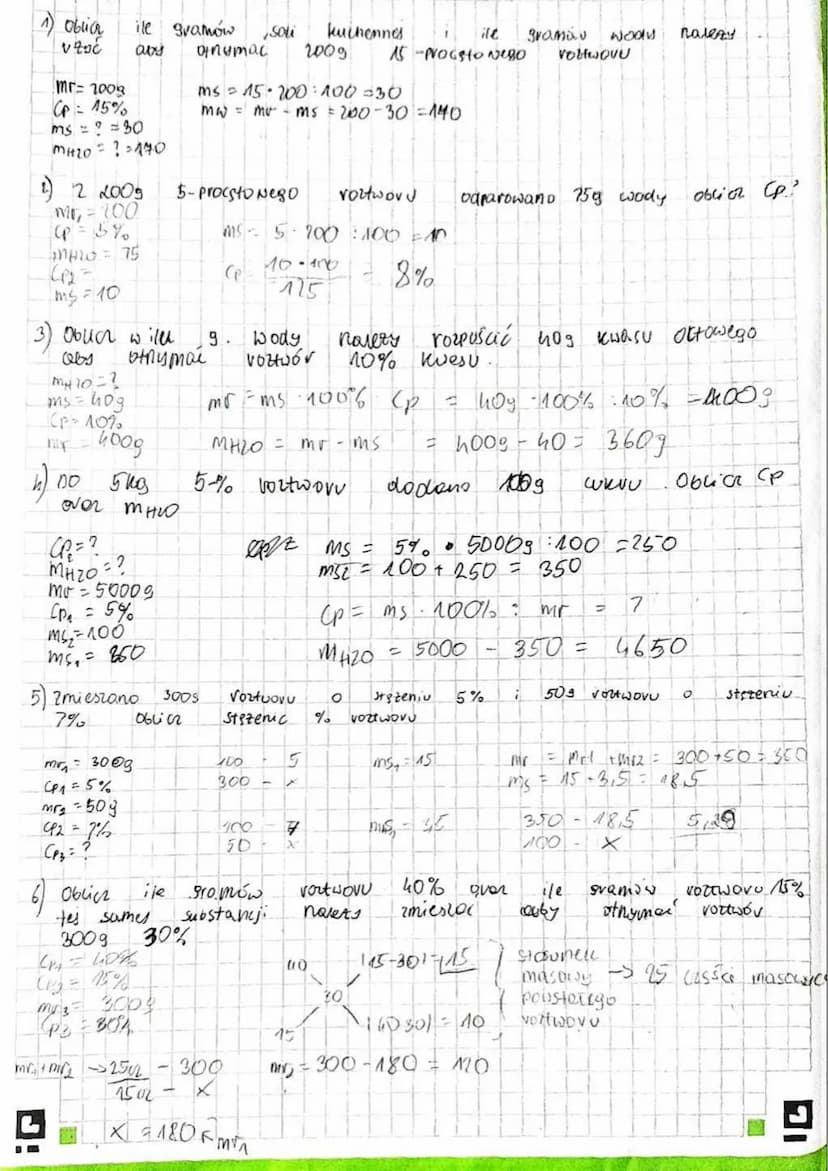 1) Oblicz ile gramów soli kuchennej i ile gramów wody należy
wziąć aby otrzymać 200g 15-procętowego roztworu
mr = 200g ms = 15 · 200 : 100 = 30
Cp = 15% mw = mr - ms = 200 - 30 = 170
ms = ? = 30
mH2O = ? = 170
2) Z 200g 5-procętowego roztworu odparowano 75g wody oblicz Cp?
mr1 = 200
Cp = 5% ms = 5 · 200 : 100 = 10
mH2O = 75
Cp2 = Cp = 10 · 100 / 125 = 8%
ms = 10
3) Oblicz w ilu g. wody należy rozpuścić 40g kwasu octowego
aby otrzymać roztwór 10% kwasu.
mH2O = ?
ms = 40g mr = ms · 100% Cp = 40g · 100% : 10% = 400g
Cp = 10%
mr = 400g mH2O = mr - ms = 400g - 40 = 360g
4) DO 5kg 5-% roztworu dodano 100g cukru. Oblicz Cp
oraz mH2O
Cp2 = ? ms = 5% · 5000g : 100 = 250
mH2O = ? ms2 = 100 + 250 = 350
mr = 5000g
Cp1 = 5% Cp = ms · 100% : mr = ?
ms2 = 100
ms1 = 250 mH2O = 5000 - 350 = 4650
5) Zmieszano 300g roztworu o stężeniu 5% i 50g roztworu o stężeniu
7% Oblicz stężenie % roztworu
mr1 = 300g 100 - 5 ms1 = 15 mr = mr1 + mr2 = 300 + 50 = 350
Cp1 = 5% 300 - x ms = 15 + 3,5 = 18,5
mr2 = 50g
Cp2 = 7% 100 - 7 ms2 = 3,5 350 - 18,5 5,29
Cp3 = ? 50 - x 100 - x
6) Oblicz ile gramów roztworu 40% oraz ile gramów roztworu 15%
tej samej substancji należy zmieszać aby otrzymać roztwór
300g 30%
Cp1 = 40% 40 |15-30| = 15 stosunek
Cp2 = 15% masowy → 25 części masowych
mr3 = 300g 30 powstałego
Cp3 = 30% 15 |40 30| = 10 roztworu
mr1 + mr2 → 25cz - 300 mr2 = 300 - 180 = 120
15cz - x
x = 180 ← mr1